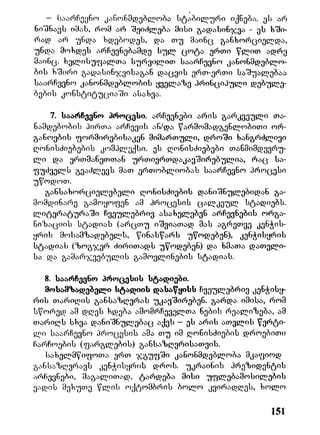 – საარჩევნო კანონმდებლობა სტაბილური იქნება. ეს არ
ნიშნავს იმას, რომ არ შეიძლება მისი გადასინჯვა - ეს ხში-
რად არ უნდა ხდებოდეს, და თუ მაინც განხორციელდა,
უნდა მოხდეს არჩევნებამდე სულ ცოტა ერთი წლით ადრე
მაინც. ხელისუფალთა სურვილით საარჩევნო კანონმდებლო-
ბის ხშირი გადასინჯვისაგან დაცვის ერთ-ერთი საშუალებაა
საარჩევნო კანონმდებლობის ყველაზე პრინციპული დებულე-
ბების კონსტიტუციაში ასახვა.
7. საარჩევნო პროცესი. არჩევნები არის გარკვეული თა-
ნამდებობის პირთა არჩევის ან/და წარმომადგენლობითი ორ-
განოების ფორმირებისაკენ მიმართული, დროში ხანგრძლივი
ღონისძიებების კომპლექსი. ეს ღონისძიებები თანმიმდევრუ-
ლი და ერთმანეთთან ურთიერთდაკავშირებულია, რაც სა-
ფუძველს გვაძლევს მათ ერთობლიობას საარჩევნო პროცესი
ვუწოდოთ.
განსახორციელებელი ღონისძიების დანიშნულებიდან გა-
მომდინარე გამოყოფენ ამ პროცესის ცალკეულ სტადიებს.
ლიტერატურაში ჩვეულებრივ ასახელებენ არჩევნების ორგა-
ნიზაციის სტადიას (არცთუ იშვიათად მას აგრეთვე კენჭის-
ყრის მოსამზადებელს, წინასწარს უწოდებენ), კენჭისყრის
სტადიას (ზოგჯერ ძირითადს უწოდებენ) და ხმათა დათვლი-
სა და გამარჯვებულის გამოვლინების სტადიას.
8. საარჩევნო პროცესის სტადიები.
მოსამზადებელი სტადიის დასაწყისს ჩვეულებრივ კენჭისყ-
რის თარიღის განსაზღვრას უკავშირებენ. გარდა იმისა, რომ
სწორედ ამ დღეს ხდება ამომრჩეველთა ნების რეალიზება, ამ
თარიღს სხვა დანიშნულებაც აქვს – ეს არის ათვლის წერტი-
ლი საარჩევნო პროცესის ამა თუ იმ ღონისძიების დროებითი
ჩარჩოების (ფარგლების) განსაზღვრისათვის.
სახელმწიფოთა ერთ ჯგუფში კანონმდებლობა მკაფიოდ
განსაზღვრავს კენჭისყრის დროს. უკრაინის პრეზიდენტის
არჩევნები, მაგალითად, ტარდება მისი უფლებამოსილების
ვადის მეხუთე წლის ოქტომბრის ბოლო კვირადღეს, ხოლო
151